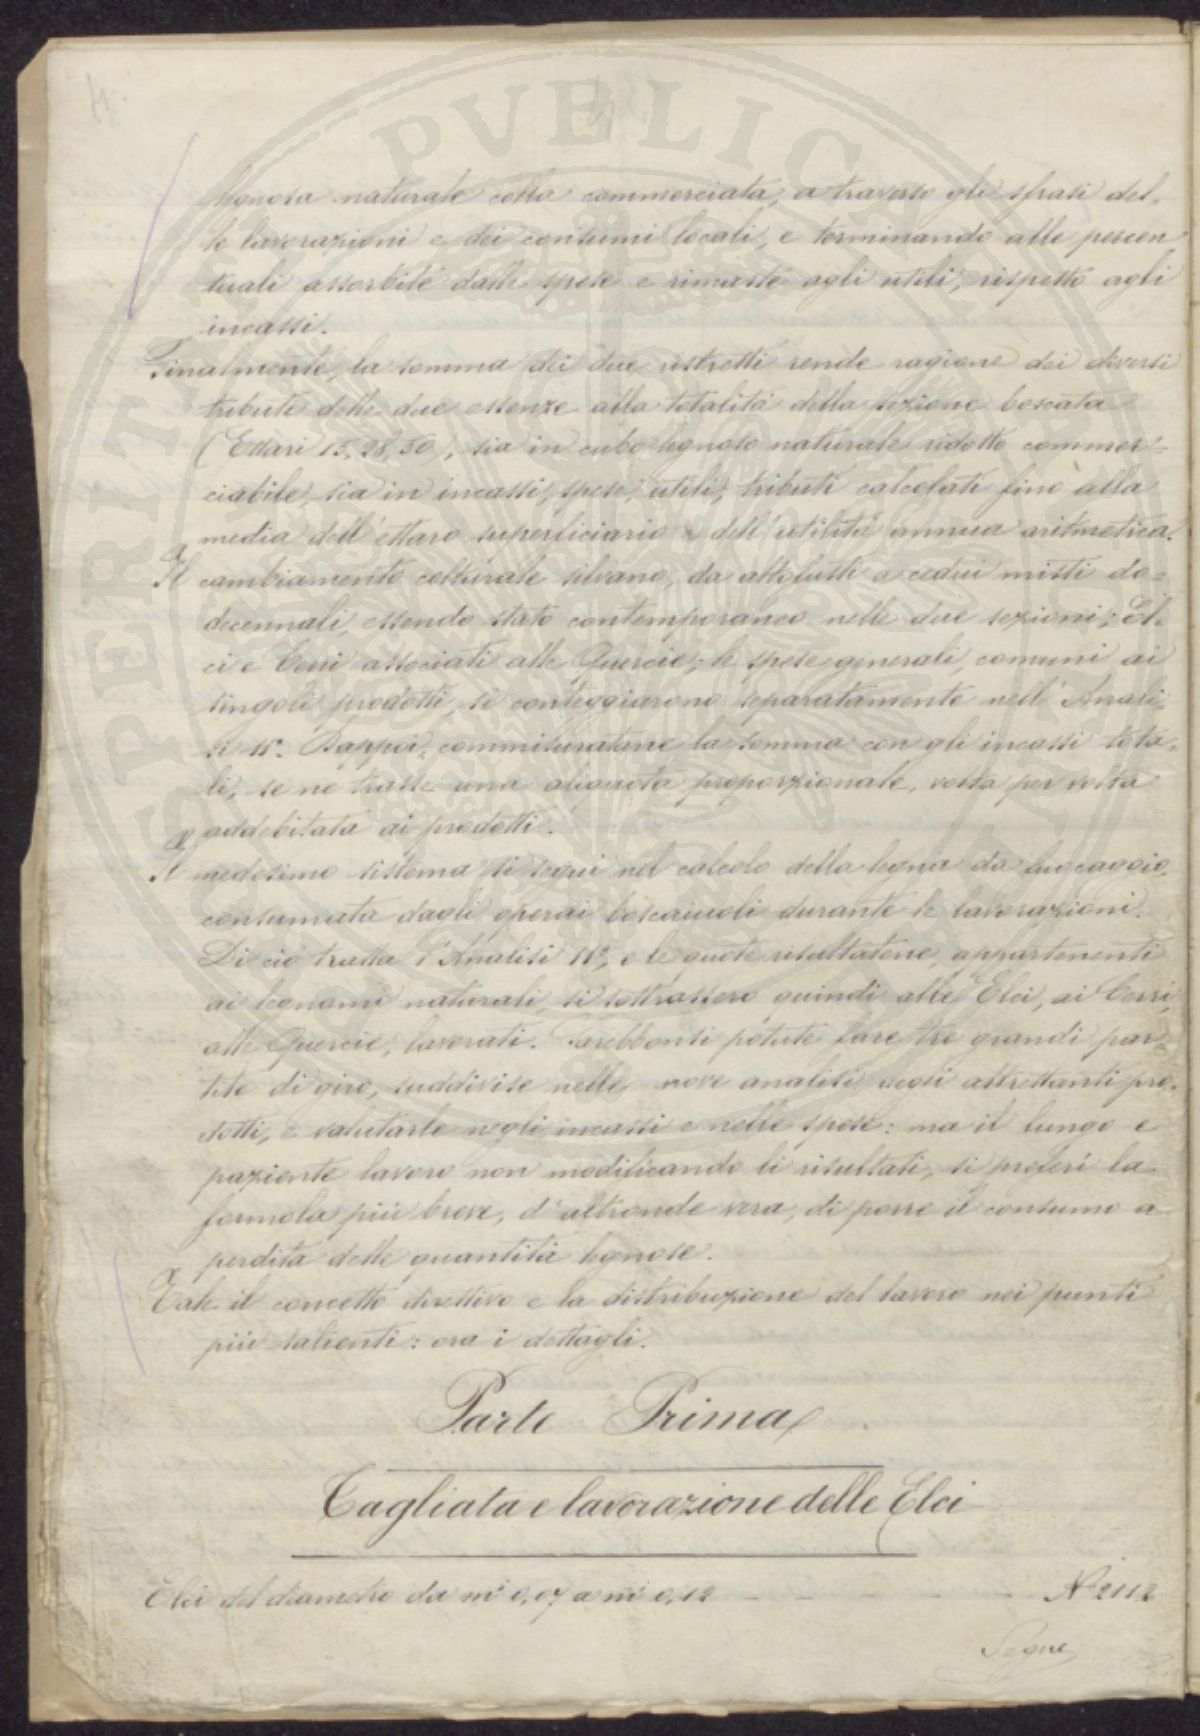 legnosa naturale colla commerciata, a traverso gli sfrasi del-
le lavorazioni e dei consumi locali, e terminando alle percen-
tuali assorbite dalle spese e rimaste agli utili, rispetto agli
incassi.
Finalmente, la somma dei due ristretti rende ragione dei diversi
tributi delle due essenze alla totalità della sezione boscata
(Ettari 15,28,50), sia in cubo legnoso naturale ridotto commer=
ciabile, sia in incassi, spese, utili; tributi calcolati fino alla
media dell'ettaro superficiario e dell'utilità annua aritmetica.
Il cambiamento colturale silvano, da altofusti a cedui misti do=
decennali, essendo stato contemporaneo nelle due sezioni; El-
ci e Cerri associati alle Quercie; le spese generali, comuni ai
singoli prodotti, si conteggiarono separatamente nell'Anali-
si 11ª. Dappoi, commisuratane la somma con gli incassi tota-
li, se ne trasse una aliquota proporzionale, volta per volta
addebitata ai prodotti.
Il medesimo sistema si seguì nel calcolo della legna da
consumata dagli operai boscaiuoli durante le lavorazioni.
Di ciò tratta l'Analisi 11ª, e le quote risultatene, appartenenti
ai legnami naturali, si sottrassero quindi alle Elci, ai Cerri,
alle Quercie, lavorati. Sarebbonsi potute fare tre grandi par=
tite di giro, suddivise nelle nove analisi degli altrettanti pro-
dotti, e valutarle negli incassi e nelle spese: ma il lungo e
paziente lavoro non modificando li risultati, si preferì la
formola più breve, d'altronde vera, di porre il consumo a
perdita delle quantità legnose.
Tale il concetto direttivo e la distribuzione del lavoro nei punti
più salienti: ora i dettagli.
Parte Prima
Tagliata e lavorazione delle Elci
Elci del diametro da mi 0,07 a mi 0,12 - - - - N° 2112
Segue
PVBLICAE
PERITI